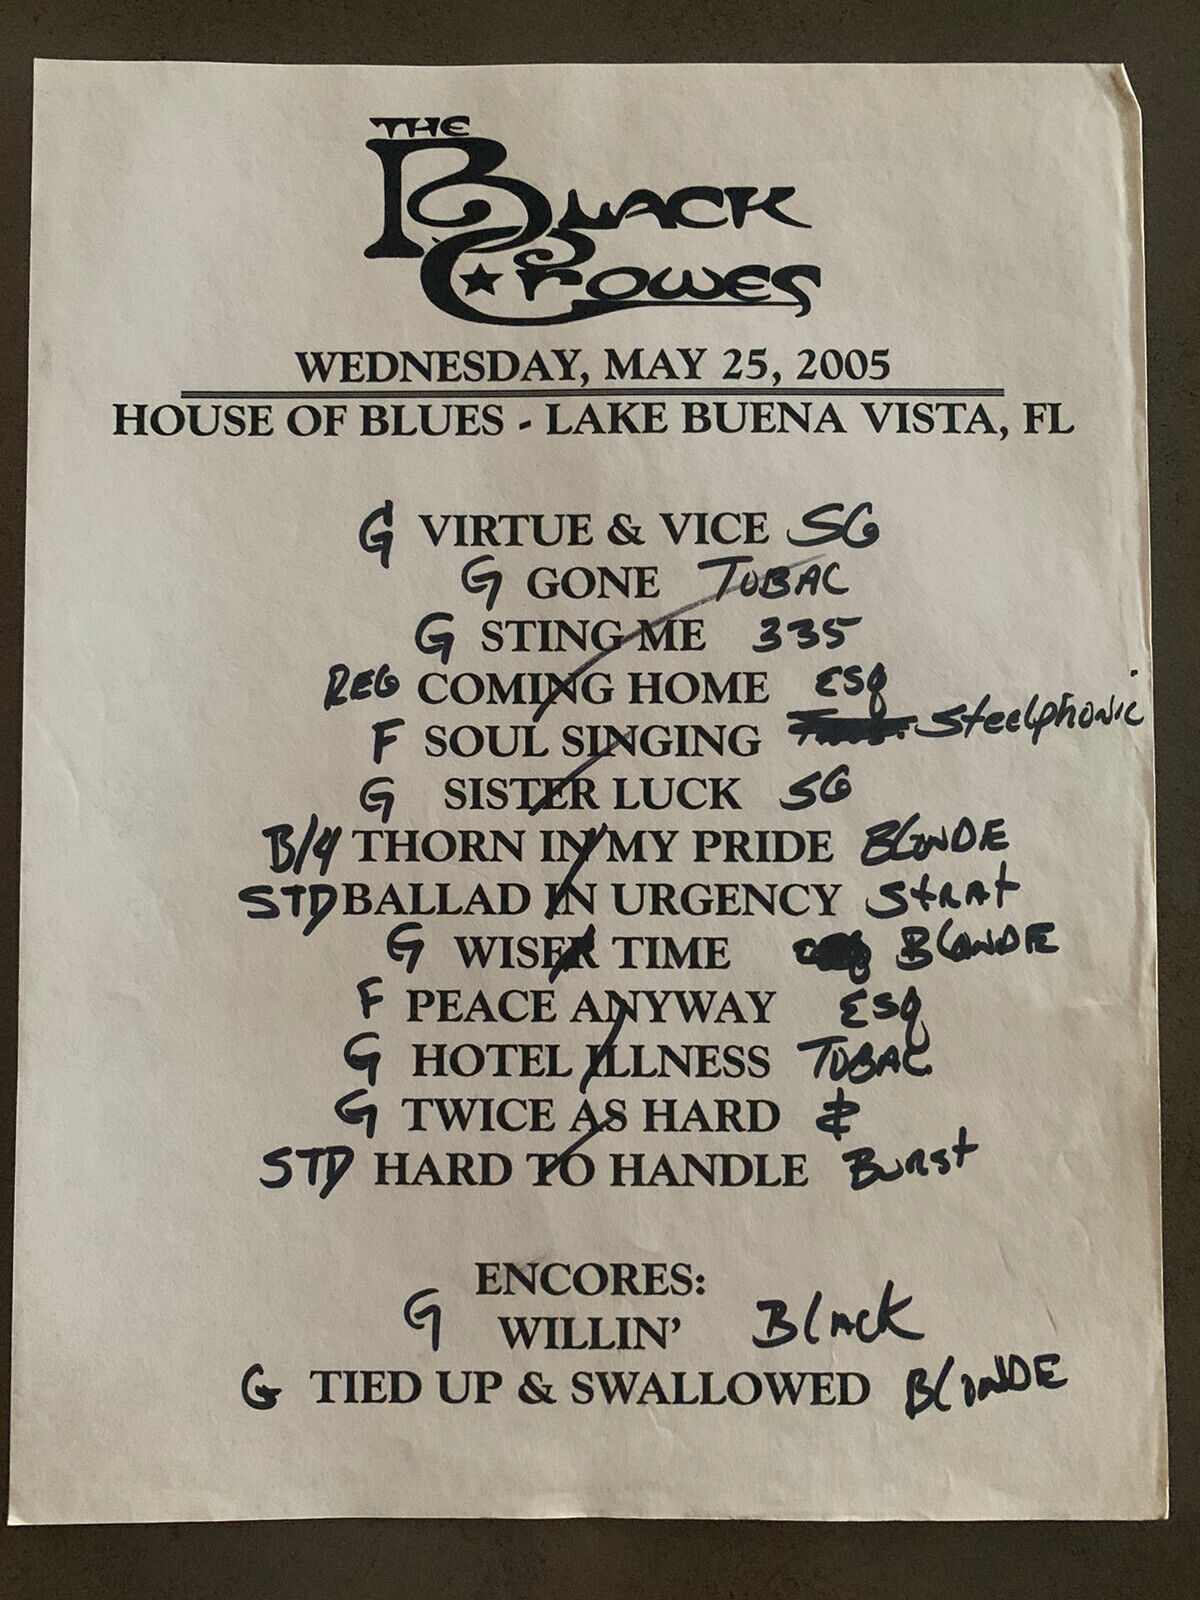 THE
BLACK
CROWES
WEDNESDAY, MAY 25, 2005
HOUSE OF BLUES - LAKE BUENA VISTA, FL
G VIRTUE & VICE SG
G GONE TOBAC
G STING ME 335
REG COMING HOME ESQ
F SOUL SINGING Steelphonic
G SISTER LUCK SG
B/4 THORN IN MY PRIDE BLONDE
STD BALLAD IN URGENCY StRAt
G WISER TIME BLONDE
F PEACE ANYWAY ESQ
G HOTEL ILLNESS TOBAC
G TWICE AS HARD
STD HARD TO HANDLE BURSt
ENCORES:
G WILLIN' BlAcK
G TIED UP & SWALLOWED BLONDE